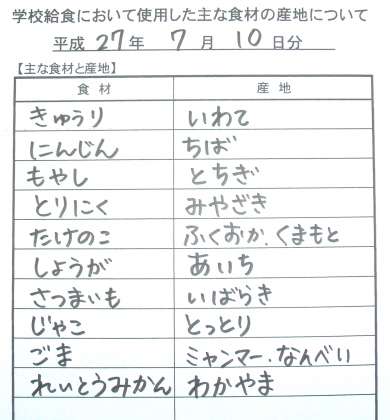 学校給食において使用した主な食材の産地について
平成 27 年 7 月 10 日分
【主な食材と産地】
食材 産地
きゅうり いわて
にんじん ちば
もやし とちぎ
とりにく みやざき
たけのこ ふくおか.くまもと
しょうが あいち
さつまいも いばらき
じゃこ とっとり
ごま ミャンマー.なんべい
れいとうみかん わかやま